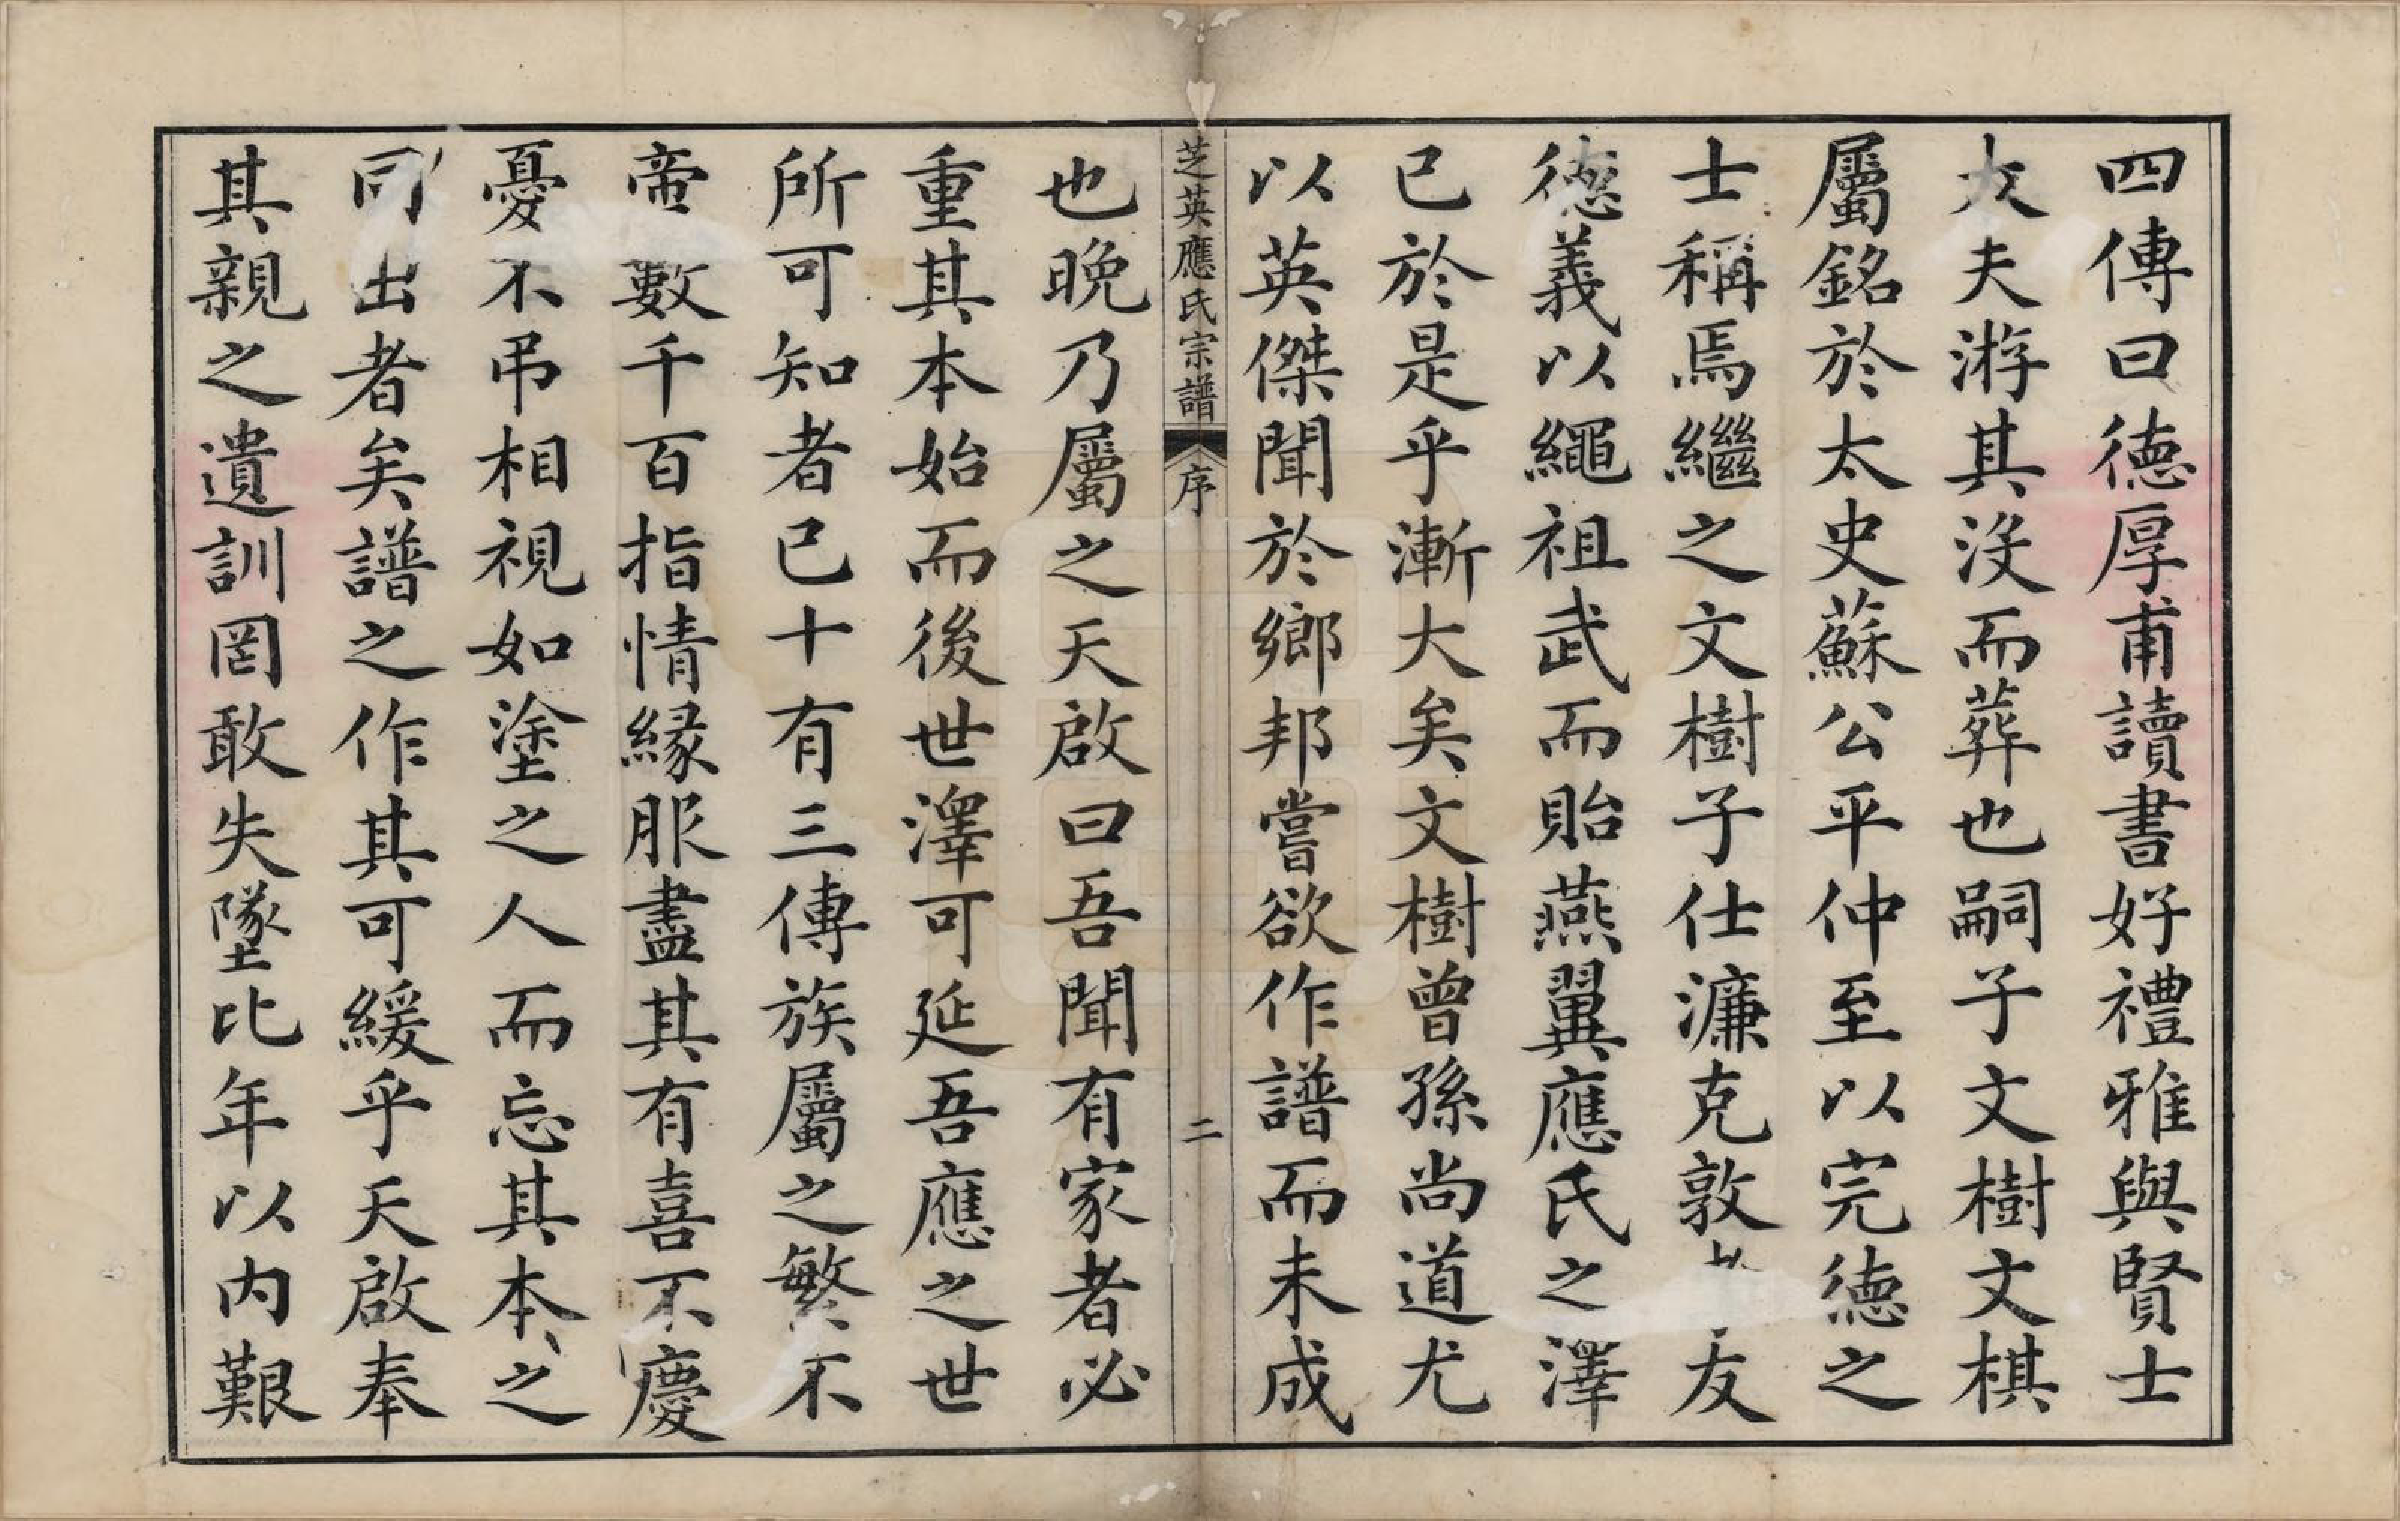 四傳曰德厚甫讀書好禮雅與賢士
大夫游其沒而葬也嗣子文樹文棋
屬銘於太史蘇公平仲至以完德之
士稱焉繼之文樹子仕濂克敦孝友
德義以繩祖武而貽燕翼應氏之澤
已於是乎漸大矣文樹曾孫尚道尤
以英傑聞於鄉邦嘗欲作譜而未成
芝英應氏宗譜 序 二
也晚乃屬之天啟曰吾聞有家者必
重其本始而後世澤可延吾應之世
所可知者已十有三傳族屬之繁不
啻數千百指情緣服盡其有喜不慶
憂不弔相視如塗之人而忘其本之
同出者矣譜之作其可緩乎天啟奉
其親之遺訓罔敢失墜比年以內艱